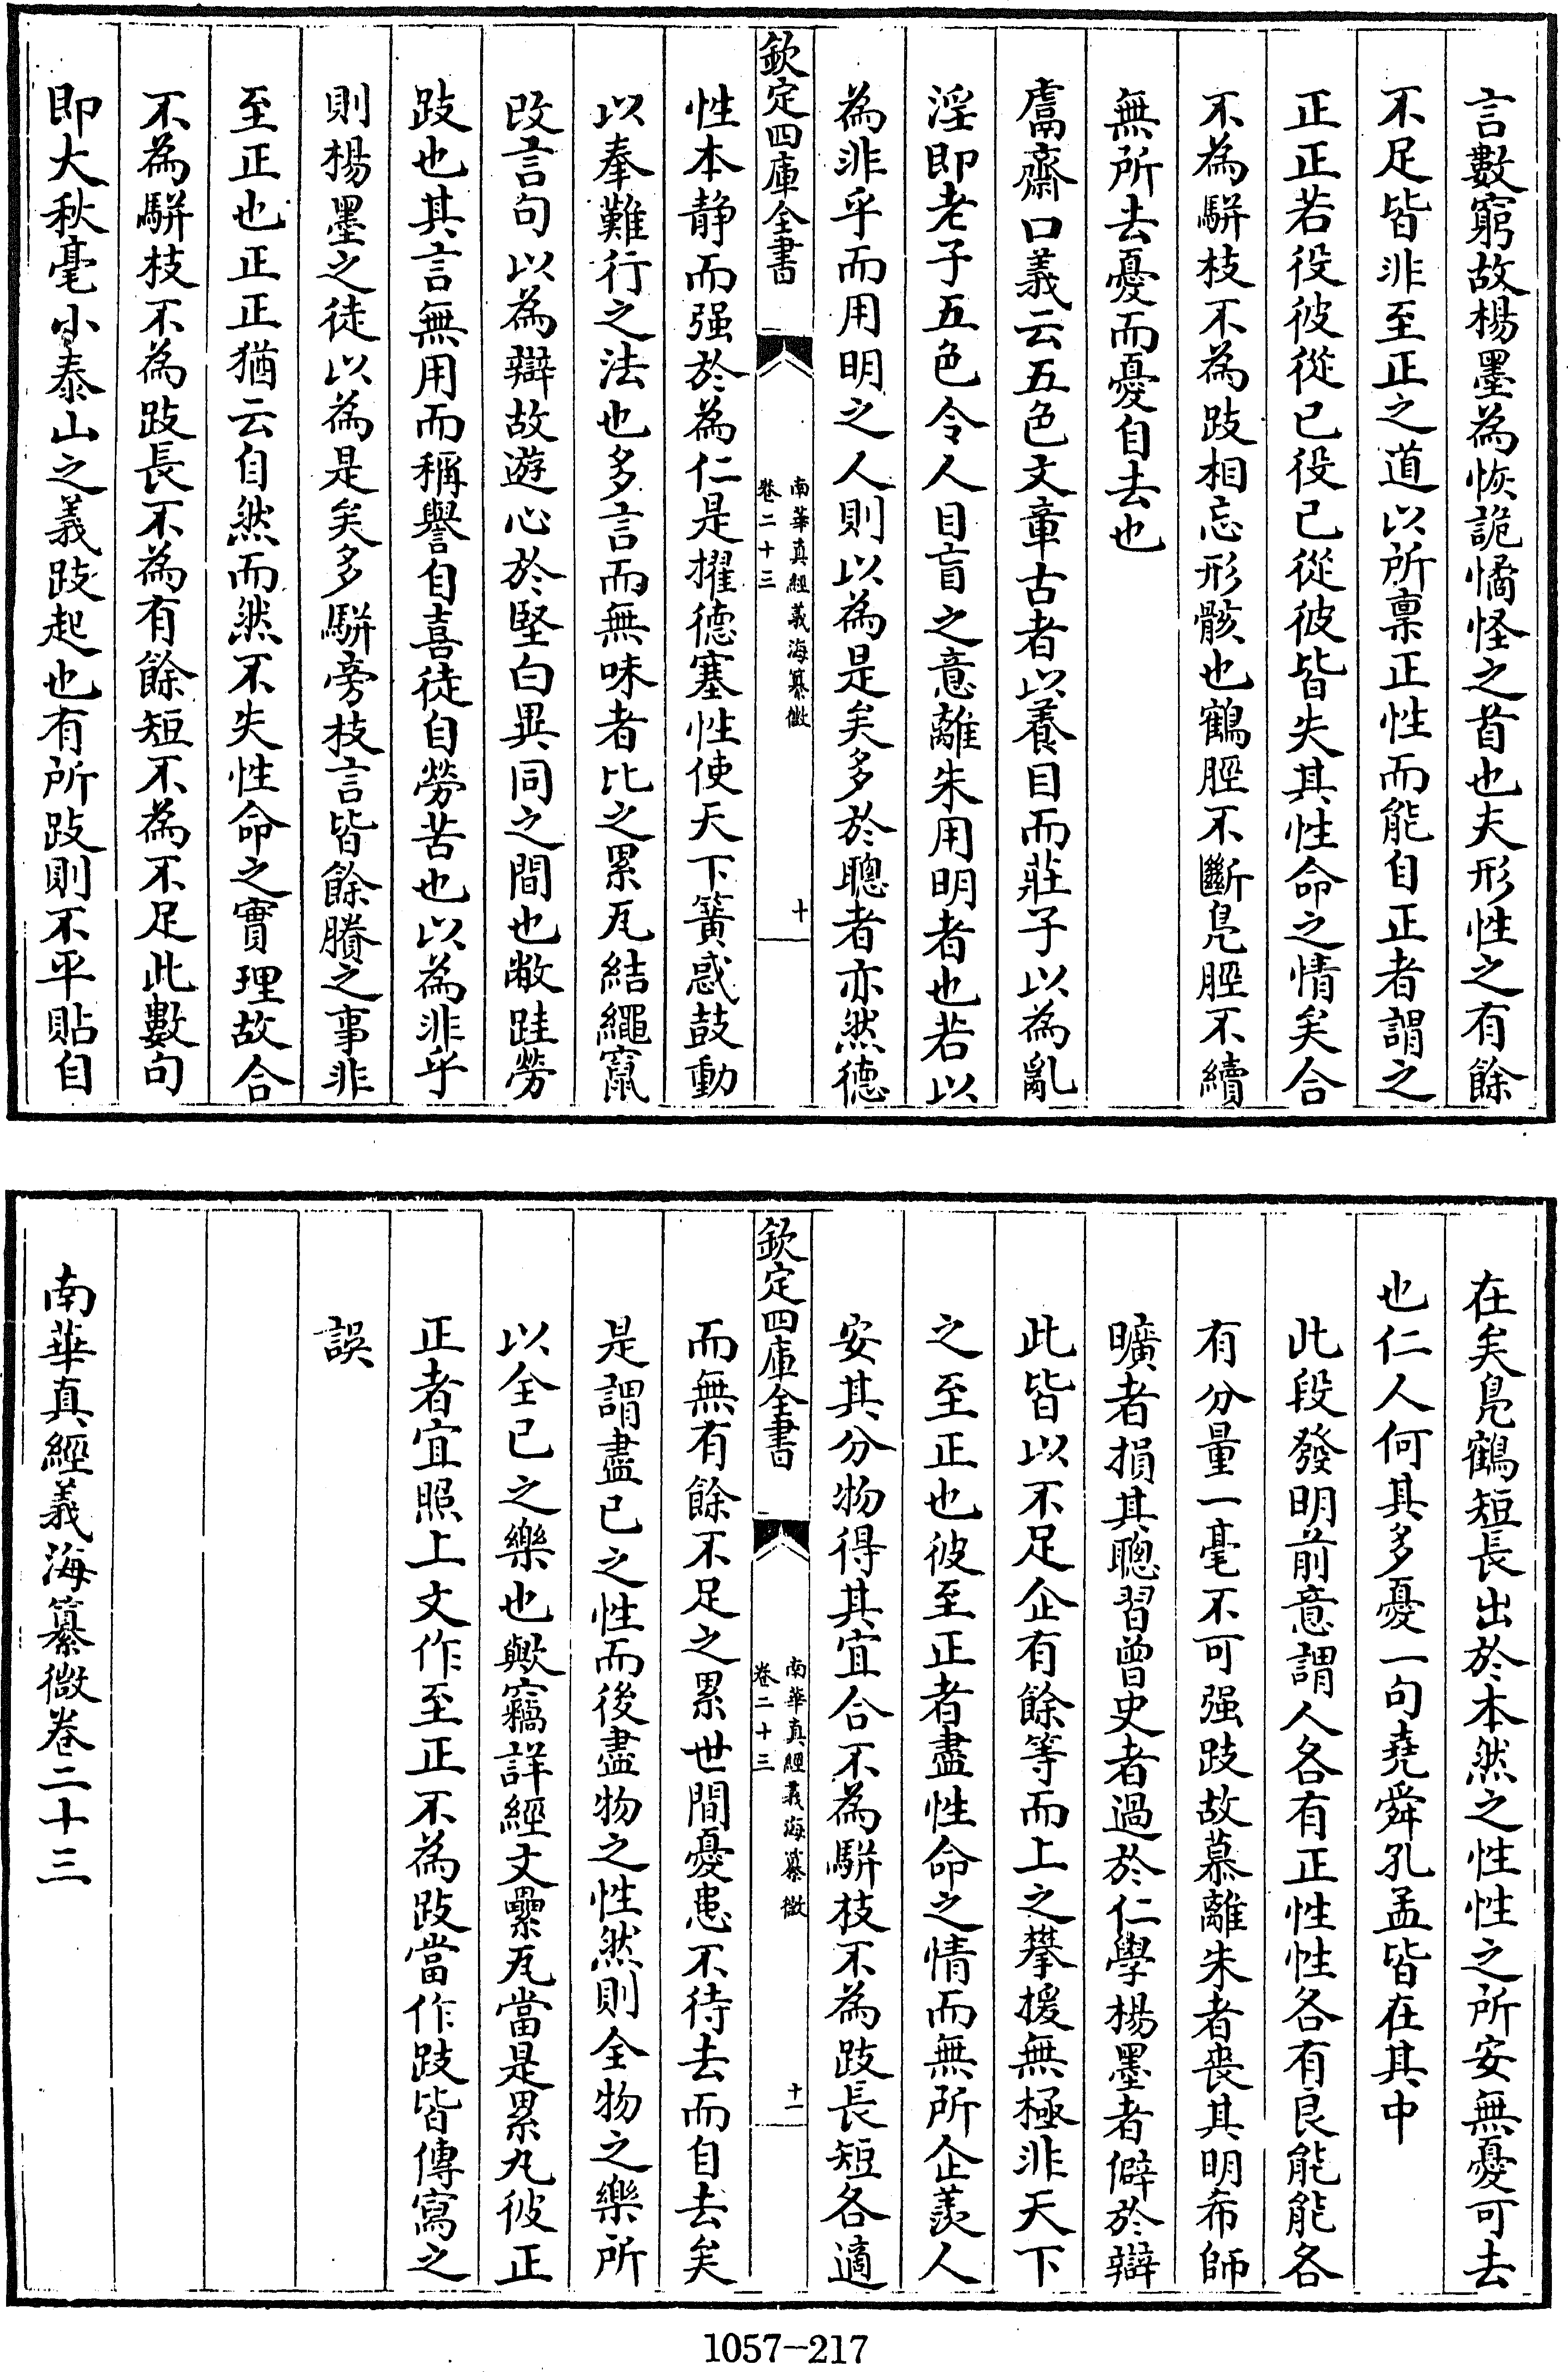 言數窮故楊墨為恢詭憰怪之首也夫形性之有餘
不足皆非至正之道以所禀正性而能自正者謂之
正正若役彼從已役已從彼皆失其性命之情矣合
不為駢枝不為跂相忘形骸也鶴脛不斷鳬脛不續
無所去憂而憂自去也
鬳齋口義云五色文章古者以養目而莊子以為亂
淫即老子五色令人目盲之意離朱用明者也若以
為非乎而用明之人則以為是矣多於聰者亦然德
欽定四庫全書
南華真經義海纂微
卷二十三
十
性本静而强於為仁是擢德塞性使天下簧惑鼓動
以奉難行之法也多言而無味者比之累瓦結繩竄
改言句以為辯故遊心於堅白異同之間也敝跬勞
跂也其言無用而稱譽自喜徒自勞苦也以為非乎
則楊墨之徒以為是矣多駢旁枝言皆餘賸之事非
至正也正正猶云自然而然不失性命之實理故合
不為駢枝不為跂長不為有餘短不為不足此數句
即大秋毫小泰山之義跂起也有所跂則不平貼自
在矣鳬鶴短長出於本然之性性之所安無憂可去
也仁人何其多憂一句堯舜孔孟皆在其中
此段發明前意謂人各有正性性各有良能能各
有分量一毫不可强跂故慕離朱者喪其明希師
曠者損其聰習曾史者過於仁學楊墨者僻於辯
此皆以不足企有餘等而上之攀援無極非天下
之至正也彼至正者盡性命之情而無所企羨人
安其分物得其宜合不為駢枝不為跂長短各適
欽定四庫全書
南華真經義海纂微
卷二十三
十一
而無有餘不足之累世間憂患不待去而自去矣
是謂盡已之性而後盡物之性然則全物之樂所
以全已之樂也歟竊詳經文纍瓦當是累丸彼正
正者宜照上文作至正不為跂當作跂皆傳寫之
誤
南華真經義海纂微卷二十三
1057-217